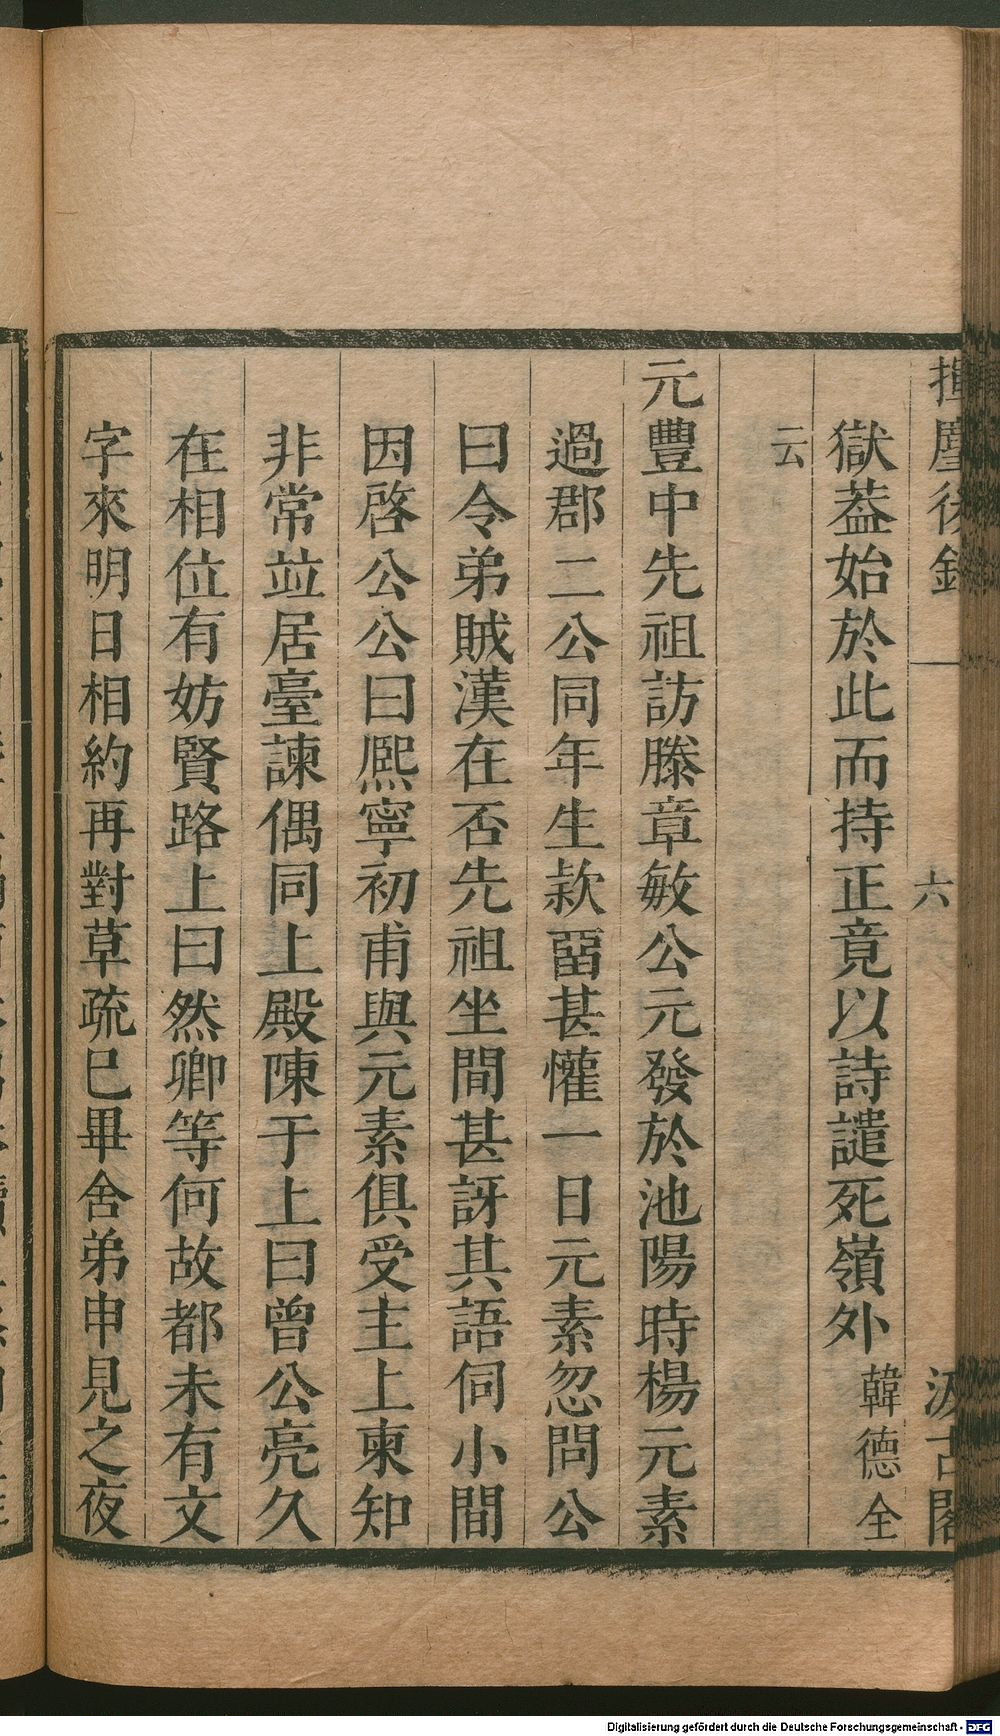 揮麈後錄 六 汲古閣
獄葢始於此而持正竟以詩譴死嶺外韓德全
云
元豐中先祖訪滕章敏公元發於池陽時楊元素
過郡二公同年生款畱甚懽一日元素忽問公
曰令弟賊漢在否先祖坐間甚訝其語伺小間
因啓公公曰熈寧初甫與元素俱受主上柬知
非常竝居臺諫偶同上殿陳于上曰曾公亮久
在相位有妨賢路上曰然卿等何故都未有文
字來明日相約再對草疏巳畢舍弟申見之夜
Digitalisierung gefördert durch die Deutsche Forschungsgemeinschaft - DFG